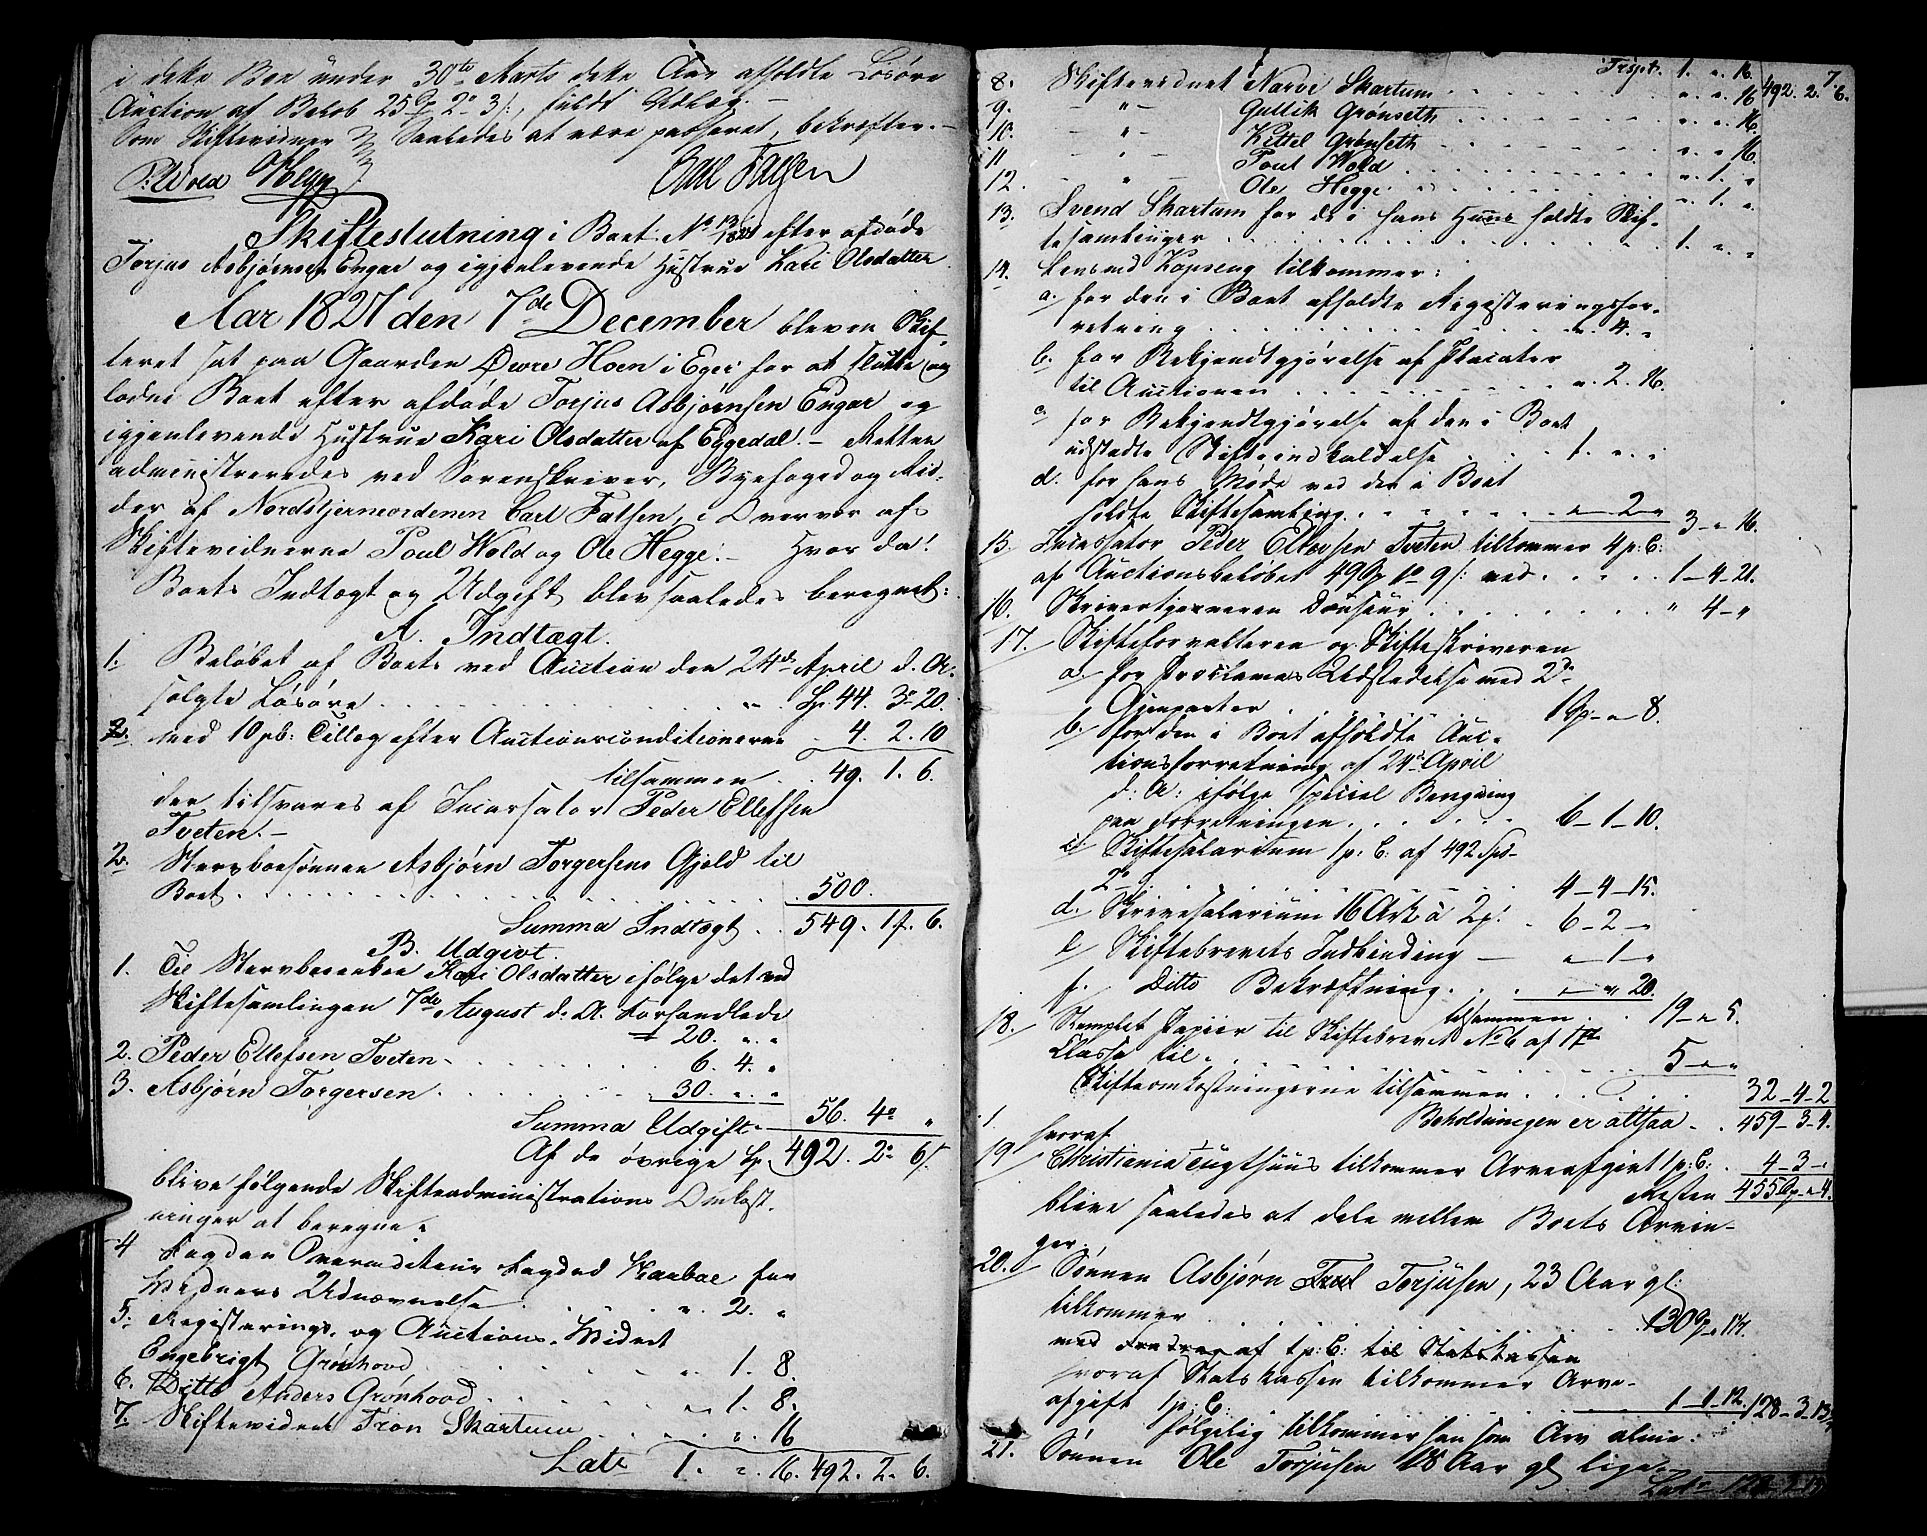 i dette Boe under 30te Marts dette Aar afholdte Løsøre
Auction af Beløb 25 Sp 2 3 s, fuldt Udlæg. –
Som Skiftevidner Saaledes at være passeret, bekræfter. –
P: Wold Hegge Carl Falsen
Skifteslutning i Boet No 13/1827 efter afdøde
Torjus Asbjørnsen Engar og igjenlevende Hustrue Kari Olsdatter
Aar 1827 den 7de December bleven Skif-
teret sat paa Gaarden Øvre Hoen i Eger for at slutte og
lodne Boet efter afdøde Torjus Asbjørnsen Engar og
igjenlevende Hustrue Kari Olsdatter af Eggedal. – Retten
administreredes ved Sorenskriver, Byefoged og Rid-
der af Nordstjerneordenen Carl Falsen, i Overvær af
Skiftevidnerne Poul Wold og Ole Hegge. – Hvor da!
Boets Indtægt og Udgift blev saaledes beregnet:
A. Indtægt.
1. Beløbet af Boets ved Auction den 24de April d. A.
solgte Løsøre . . . Sp. 44. 3 – 20.
2. med 10 pC: Tillæg efter Auctionsconditionerne . 4. 2. 10
tilsammen . . 49. 1. 6.
der tilsvares af Incassator Peder Ellefsen
Tveten. –
2. Stervboesønnen Asbjørn Torgersens Gjeld til
Boet . . . 500.
Summa Indtægt . . 549. 1. 6.
B. Udgivt.
1. Til Stervboeenken Kari Olsdatter ifølge det ved
Skiftesamlingen 7de August d. A. Forhandlede
20. „ „
2. Peder Ellefsen Tveten . . . 6. 4. „
3. Asbjørn Torgersen . . . 30. „ „
Summa Udgift – 56. 4 „
Af de øvrige Sp. 492. 2 6 s.
blive følgende Skifteadministrations Omkost-
ninger at beregne.
4 Fogden Overauditeur Fogded Kaaboe for
Vidners Udnævnelse . . . „ 2. „
5. Registerings- og Auctions-Vidnet
Engebrigt Grønhovd . . . „ 1. 8.
6. Ditto Anders Grønhovd . . . „ 1. 8.
7. Skiftevidnet Tron Skartum . . . „ „ 16
Late 1. „ 16. 492. 2. 6.
7
Trspt. 1. „ 16. 492. 2. 6.
8. Skiftevidnet Narve Skartum . . . „ „ 16
9. – „ – Gullik Grønseth . . . „ „ 16.
10. – „ – Kittel Grønseth „ „ 16.
11 – „ – Poul Wold . . . „ 1. „
12. – „ – Ole Hegge . . . „ 1. „
13. Svend Skartum for de i hans Huus holdte Skif-
tesamlinger . . . 1. „ „
14. Lensmd Kopseng tilkommer:
a. for den i Boet afholdte Registeringsfor-
retning . . . „ 4. „
b. for Bekjendtgjørelse af Placater
til Auctionen . . . „ 2. 16.
c. for Bekjendtgjørelse af den i Boet
udstædte Skifteindkaldelse . . . 1. „ „
d. for hans Møde ved den i Boet
holdte Skiftesamling . . . „ 2 „ 3 „ 16.
15. Incassator Peder Ellevsen Tveten tilkommer 4 p: C:
af Auctionsbeløbet 49 Sp 1 9 s: med . . . 1 – 4 – 21.
16. Skrivertjeneren Douceur . . . „ 4 – „
17. Skifteforvalteren og Skifteskriveren
a. for Proclamas Udstædelse med 2de
Gjenparter . . . 1 Sp – „ 8.
b. for den i Boet afholdte Auc-
tionsforretning af 24d April
d: A: ifølge special Beregning
paa Forretningen . . . 6 – 1 – 10.
c. Skiftesalarium 1 p: C: af 492 Spd
2 . . . 4 – 4 – 15.
d. Skrivesalarium 16 Ark à 2 . 6 – 2 – „
e Skiftebrevets Indbinding — „ – 1 – „
f. Ditto Bekræftning . . . „ – „ 20.
tilsammen . . . 19 – „ 5.
18. Stemplet Papiir til Skiftebrevet No 6 af 1ste
Classe til . . . 5 – „ „
Skifteomkostningerne tilsammen . . . 32 – 4 – 2
Beholdningen er altsaa . . 459 – 3 – 4.
hvoraf
19 Christiania Tugthuus tilkommer Arveafgivt 1 p: C: . 4 – 3 – „
Resten 455 Sp „ 4.
blive saaledes at dele mellem Boets Arvin-
ger.
20. Sønnen Asbjørn Torjusen, 23 Aar gl:
tilkommer . . . 130 Sp „
af 1 p: C: til Statskassen
hvoraf Statskassen tilkommer Arve-
afgift 1 p: C: . . . 1 – 1 – 12. 128 – 3 –
følgelig tilkommer han som Arv alene .
21. Sønnen Ole Torjusen 18 Aar gl lige
Late 128 – 3 –